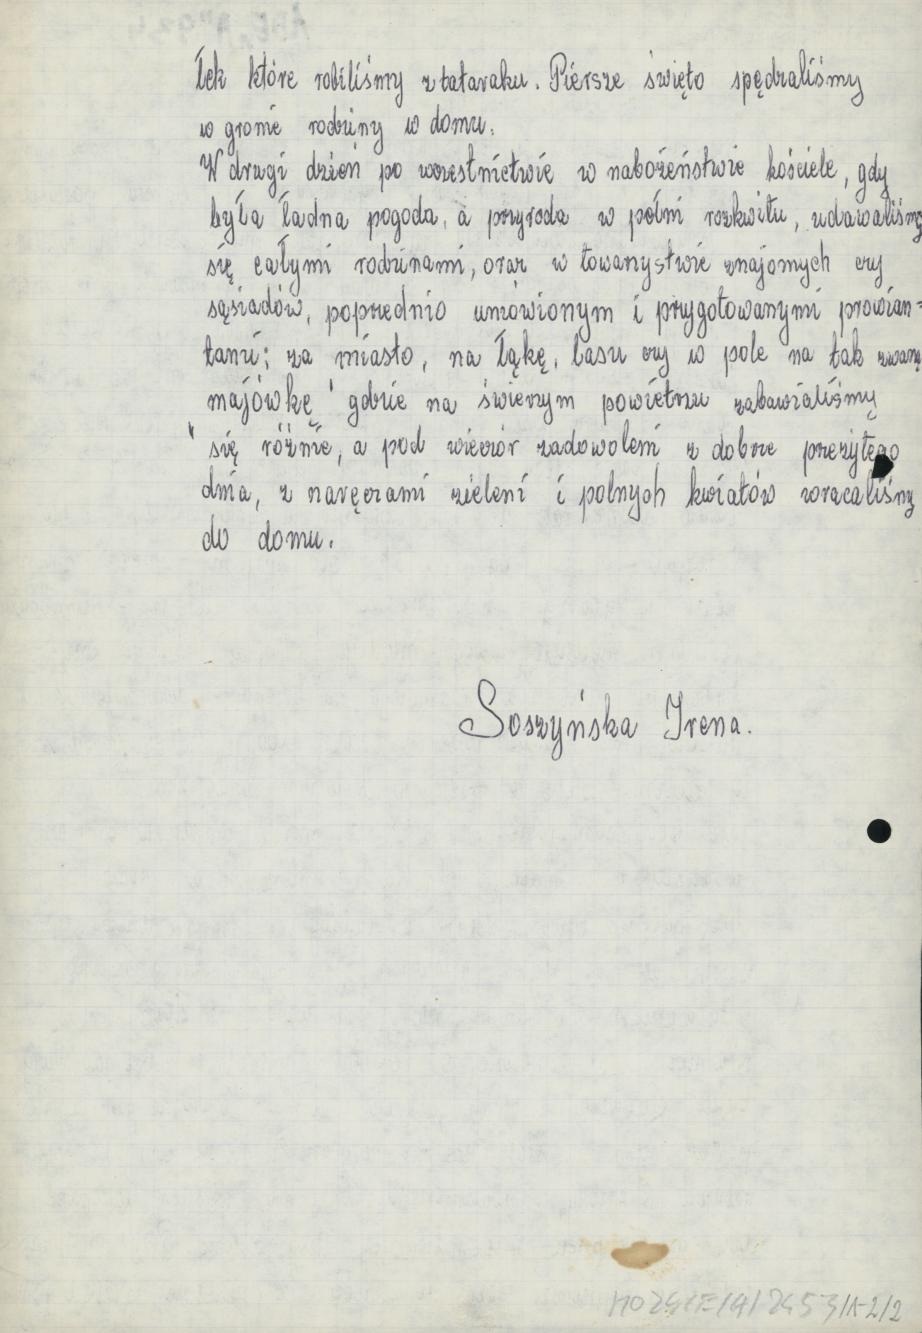 łek które robiliśmy z tataraku. Piersze święto spędzaliśmy
w gronie rodziny w domu.
W drugi dzień po uczestnictwie w nabożeństwie kościele, gdy
była ładna pogoda, a przyroda w pełni rozkwitu, udawaliśmy
się całymi rodzinami, oraz w towarzystwie znajomych czy
sąsiadów, poprzednio umówionym i przygotowanymi prowian=
tami; za miasto, na łąkę, lasu czy w pole na tak zwaną
majówkę" gdzie na świerzym powietrzu zabawialiśmy
się różnie, a pod wieczór zadowoleni z dobrze przeżytego
dnia, z naręczami zieleni i polnych kwiatów wracaliśmy
do domu.
Soszyńska Irena.